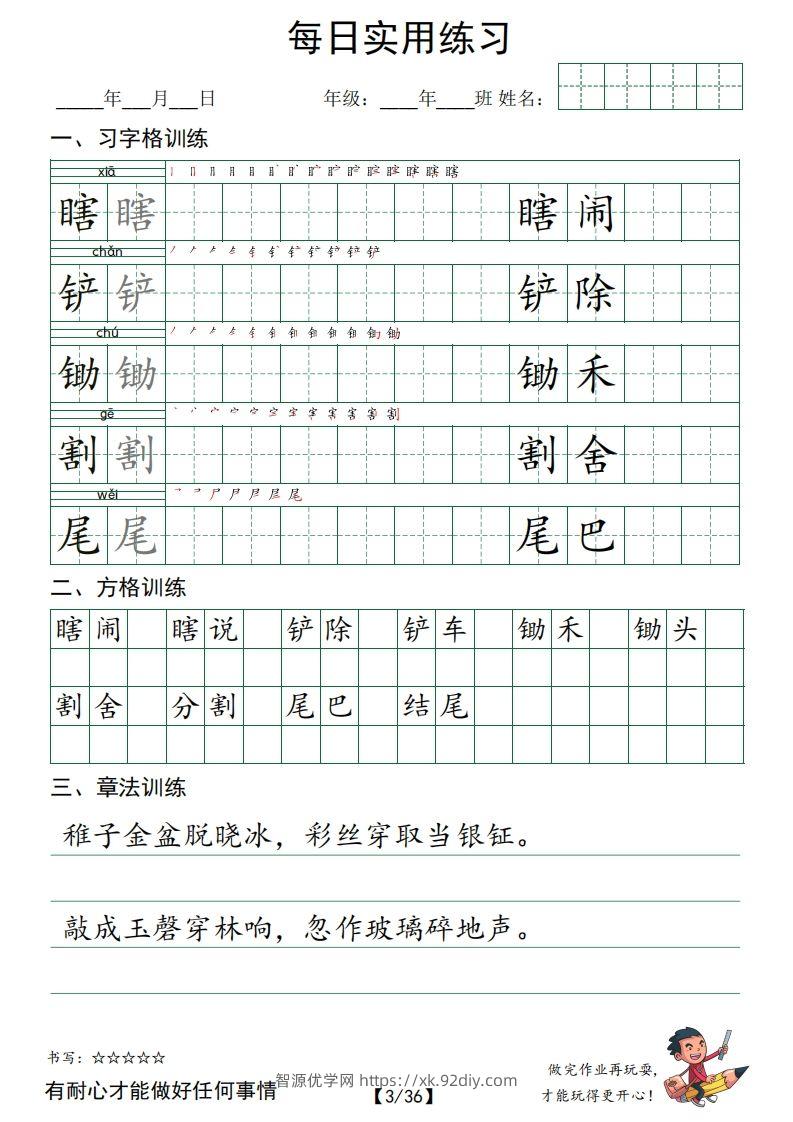 每日实用练习
_____年___月___日 年级：____年____班 姓名：
一、习字格训练
xiā
瞎 瞎 瞎 闹
chǎn
铲 铲 铲 除
chú
锄 锄 锄 禾
gē
割 割 割 舍
wěi
尾 尾 尾 巴
二、方格训练
瞎 闹 瞎 说 铲 除 铲 车 锄 禾 锄 头
割 舍 分 割 尾 巴 结 尾
三、章法训练
稚子金盆脱晓冰，彩丝穿取当银钲。
敲成玉磬穿林响，忽作玻璃碎地声。
书写：☆☆☆☆☆
有耐心才能做好任何事情
智源优学网 https://xk.92diy.com
【3/36】
做完作业再玩耍，
才能玩得更开心！